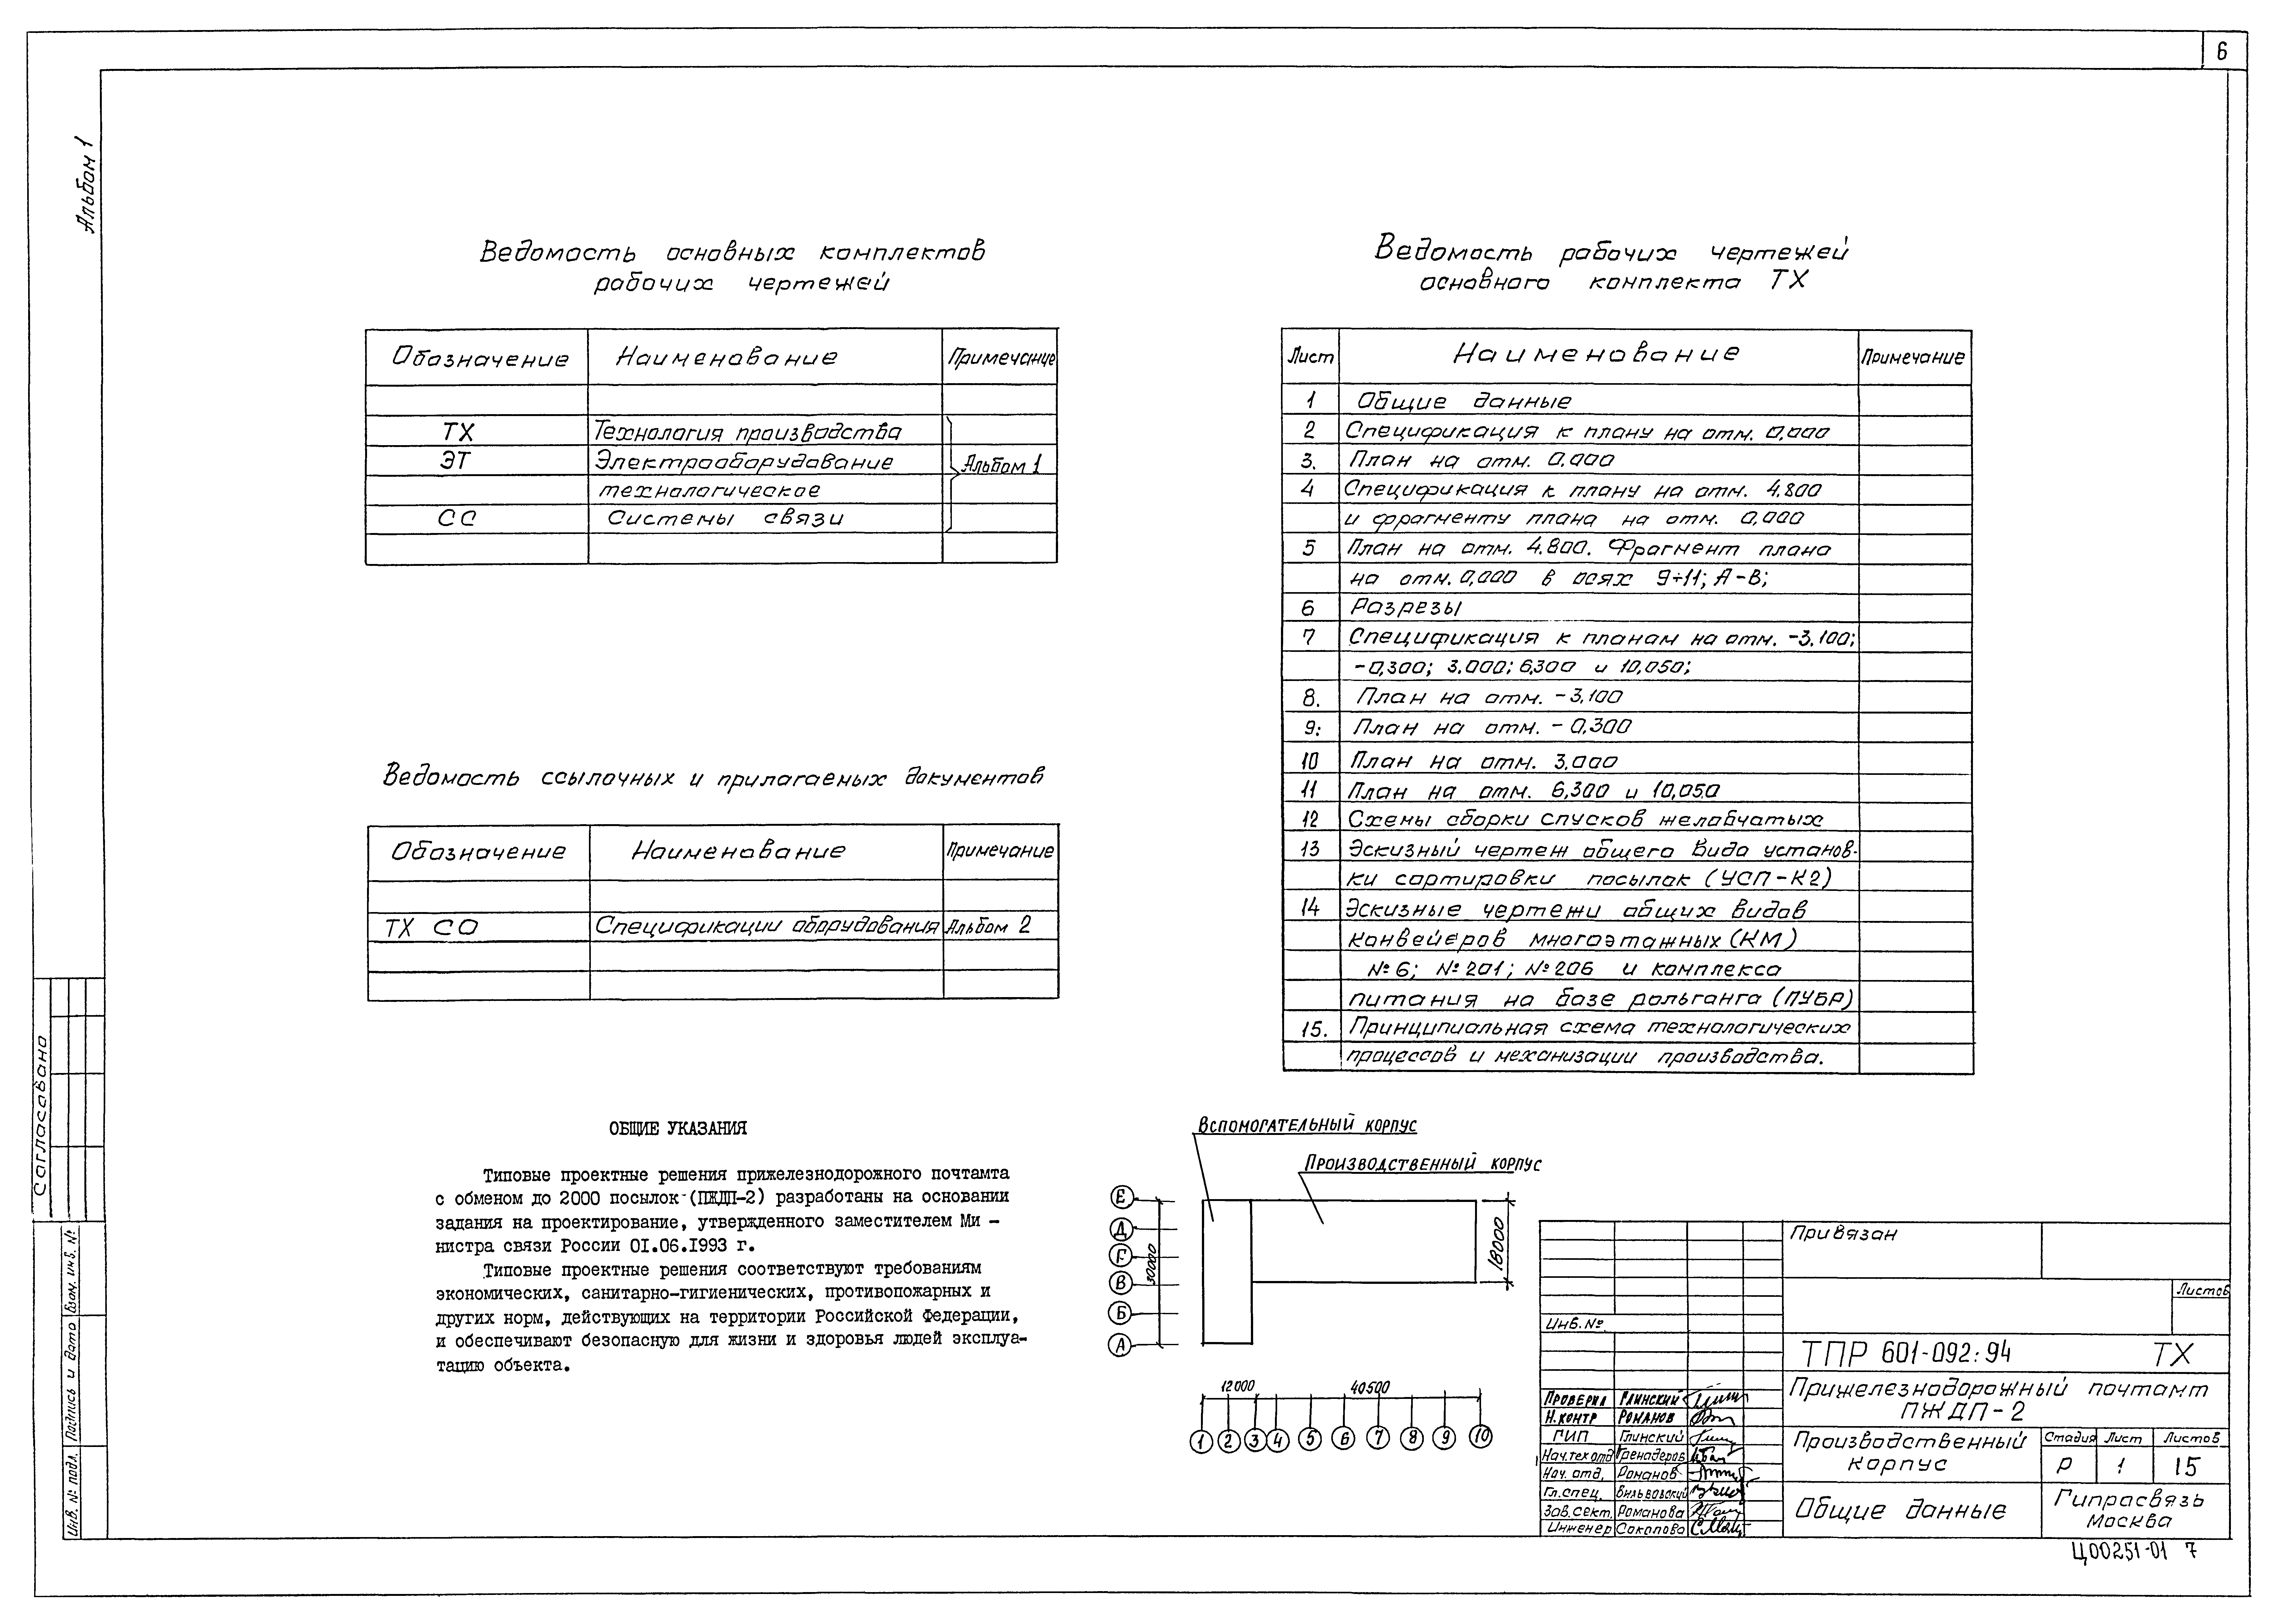 6
Альбом 1
Ведомость основных комплектов
рабочих чертежей
Обозначение Наименование Примечание
ТХ Технология производства
ЭТ Электрооборудование Альбом 1
технологическое
СС Системы связи
Ведомость ссылочных и прилагаемых документов
Обозначение Наименование Примечание
ТХ СО Спецификации оборудования Альбом 2
ОБЩИЕ УКАЗАНИЯ
Типовые проектные решения прижелезнодорожного почтамта
с обменом до 2000 посылок (ПЖДП-2) разработаны на основании
задания на проектирование, утвержденного заместителем Ми -
нистра связи России 01.06.1993 г.
Типовые проектные решения соответствуют требованиям
экономических, санитарно-гигиенических, противопожарных и
других норм, действующих на территории Российской Федерации,
и обеспечивают безопасную для жизни и здоровья людей эксплуа-
тацию объекта.
Ведомость рабочих чертежей
основного комплекта ТХ
Лист Наименование Примечание
1 Общие данные
2 Спецификация к плану на отм. 0,000
3. План на отм. 0.000
4 Спецификация к плану на отм. 4.800
и фрагменту плана на отм. 0,000
5 План на отм. 4.800. Фрагмент плана
на отм. 0,000 в осях 9÷11; А-В;
6 Разрезы
7 Спецификация к планам на отм. -3.100;
-0,300; 3.000; 6,300 и 10,050;
8. План на отм. -3,100
9. План на отм. - 0,300
10 План на отм. 3.000
11 План на отм. 6,300 и 10,050
12 Схемы сборки спусков желобчатых
13 Эскизный чертеж общего вида установ-
ки сортировки посылок (УСП-К2)
14 Эскизные чертежи общих видов
конвейеров многоэтажных (КМ)
№6; №201; №206 и комплекса
питания на базе рольганга (ПУБР)
15. Принципиальная схема технологических
процессов и механизации производства.
Вспомогательный корпус
Производственный корпус
Е
Д
Г
В
Б
А
30000
18000
12000 40500
1 2 3 4 5 6 7 8 9 10
Привязан
Листов
Инв. №
ТПР 601-092.94 ТХ
Прижелезнодорожный почтамт
ПЖДП-2
Производственный
корпус
Стадия Лист Листов
Р 1 15
Общие данные
Гипросвязь
Москва
Проверил Глинский
Н.контр Романов
ГИП Глинский
Нач.тех.отд Гренадеров
Нач. отд. Романов
Гл.спец. Вильвовский
Зав.сект. Романова
Инженер Соколова
Согласовано
Взам. инв. №
Подпись и дата
Инв. № подл.
Ц00251-01 7